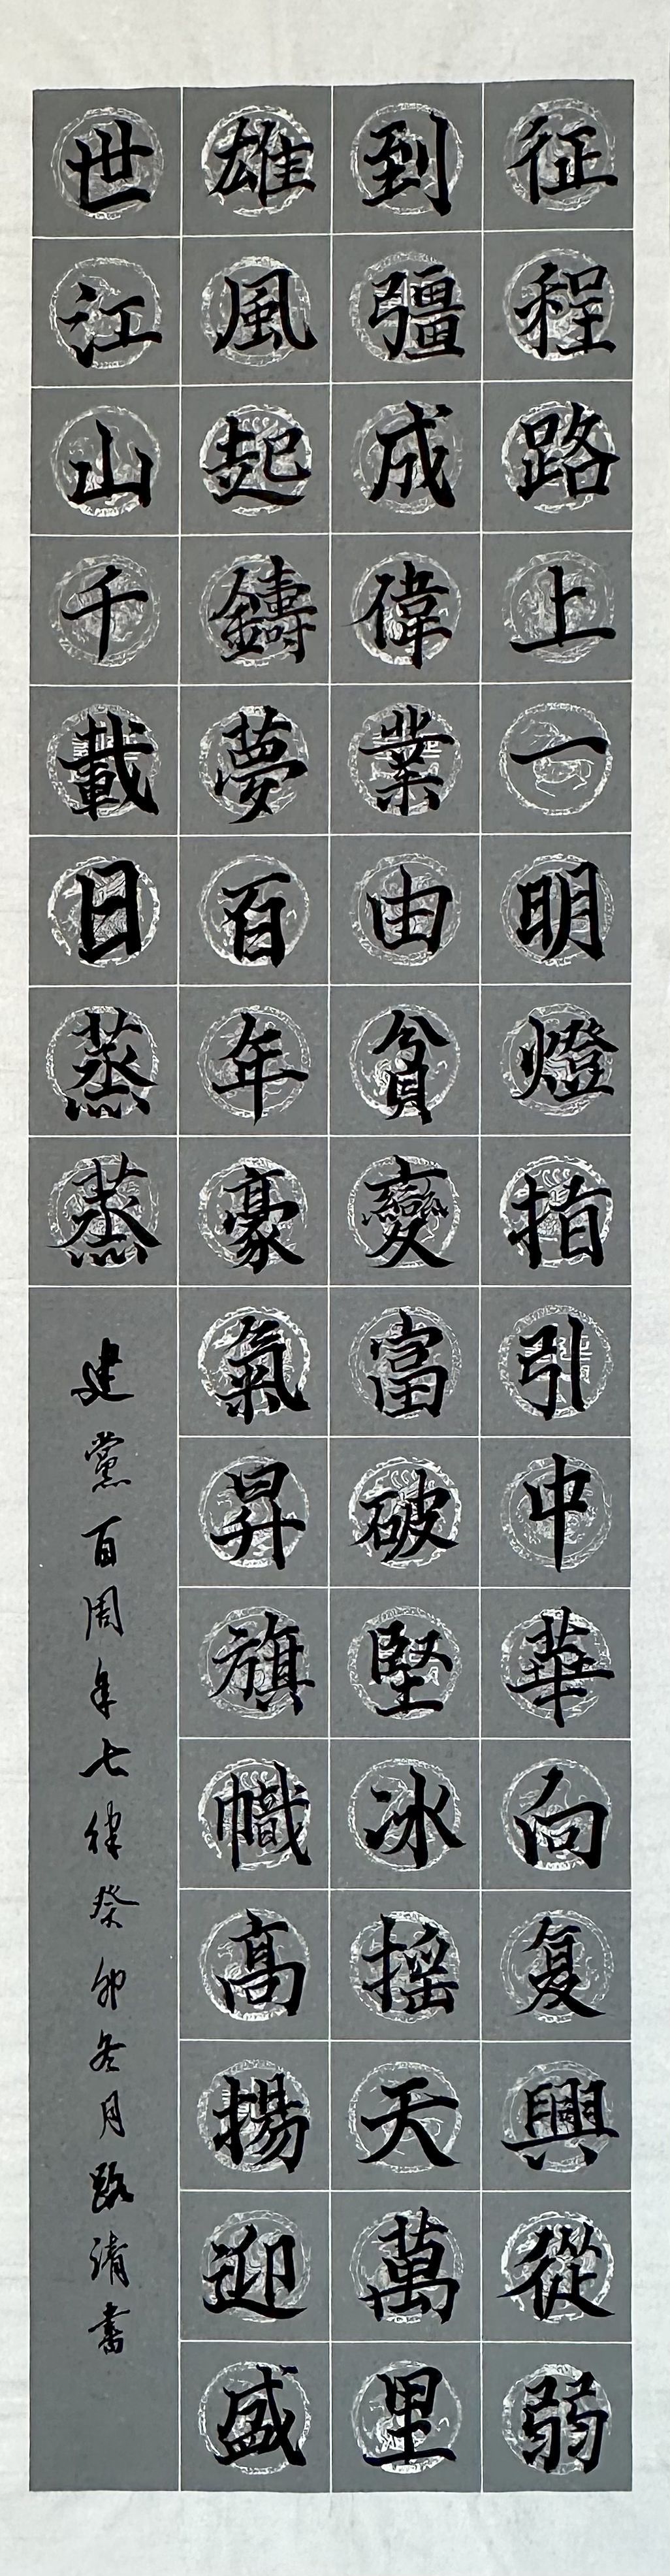 征程路上一明燈指引中華向复興從弱
到彊成偉業由貧變富破堅冰摇天萬里
雄風起鑄夢百年豪氣昇旗幟高揚迎盛
世江山千載日蒸蒸
建黨百周年七律癸卯冬月路清書